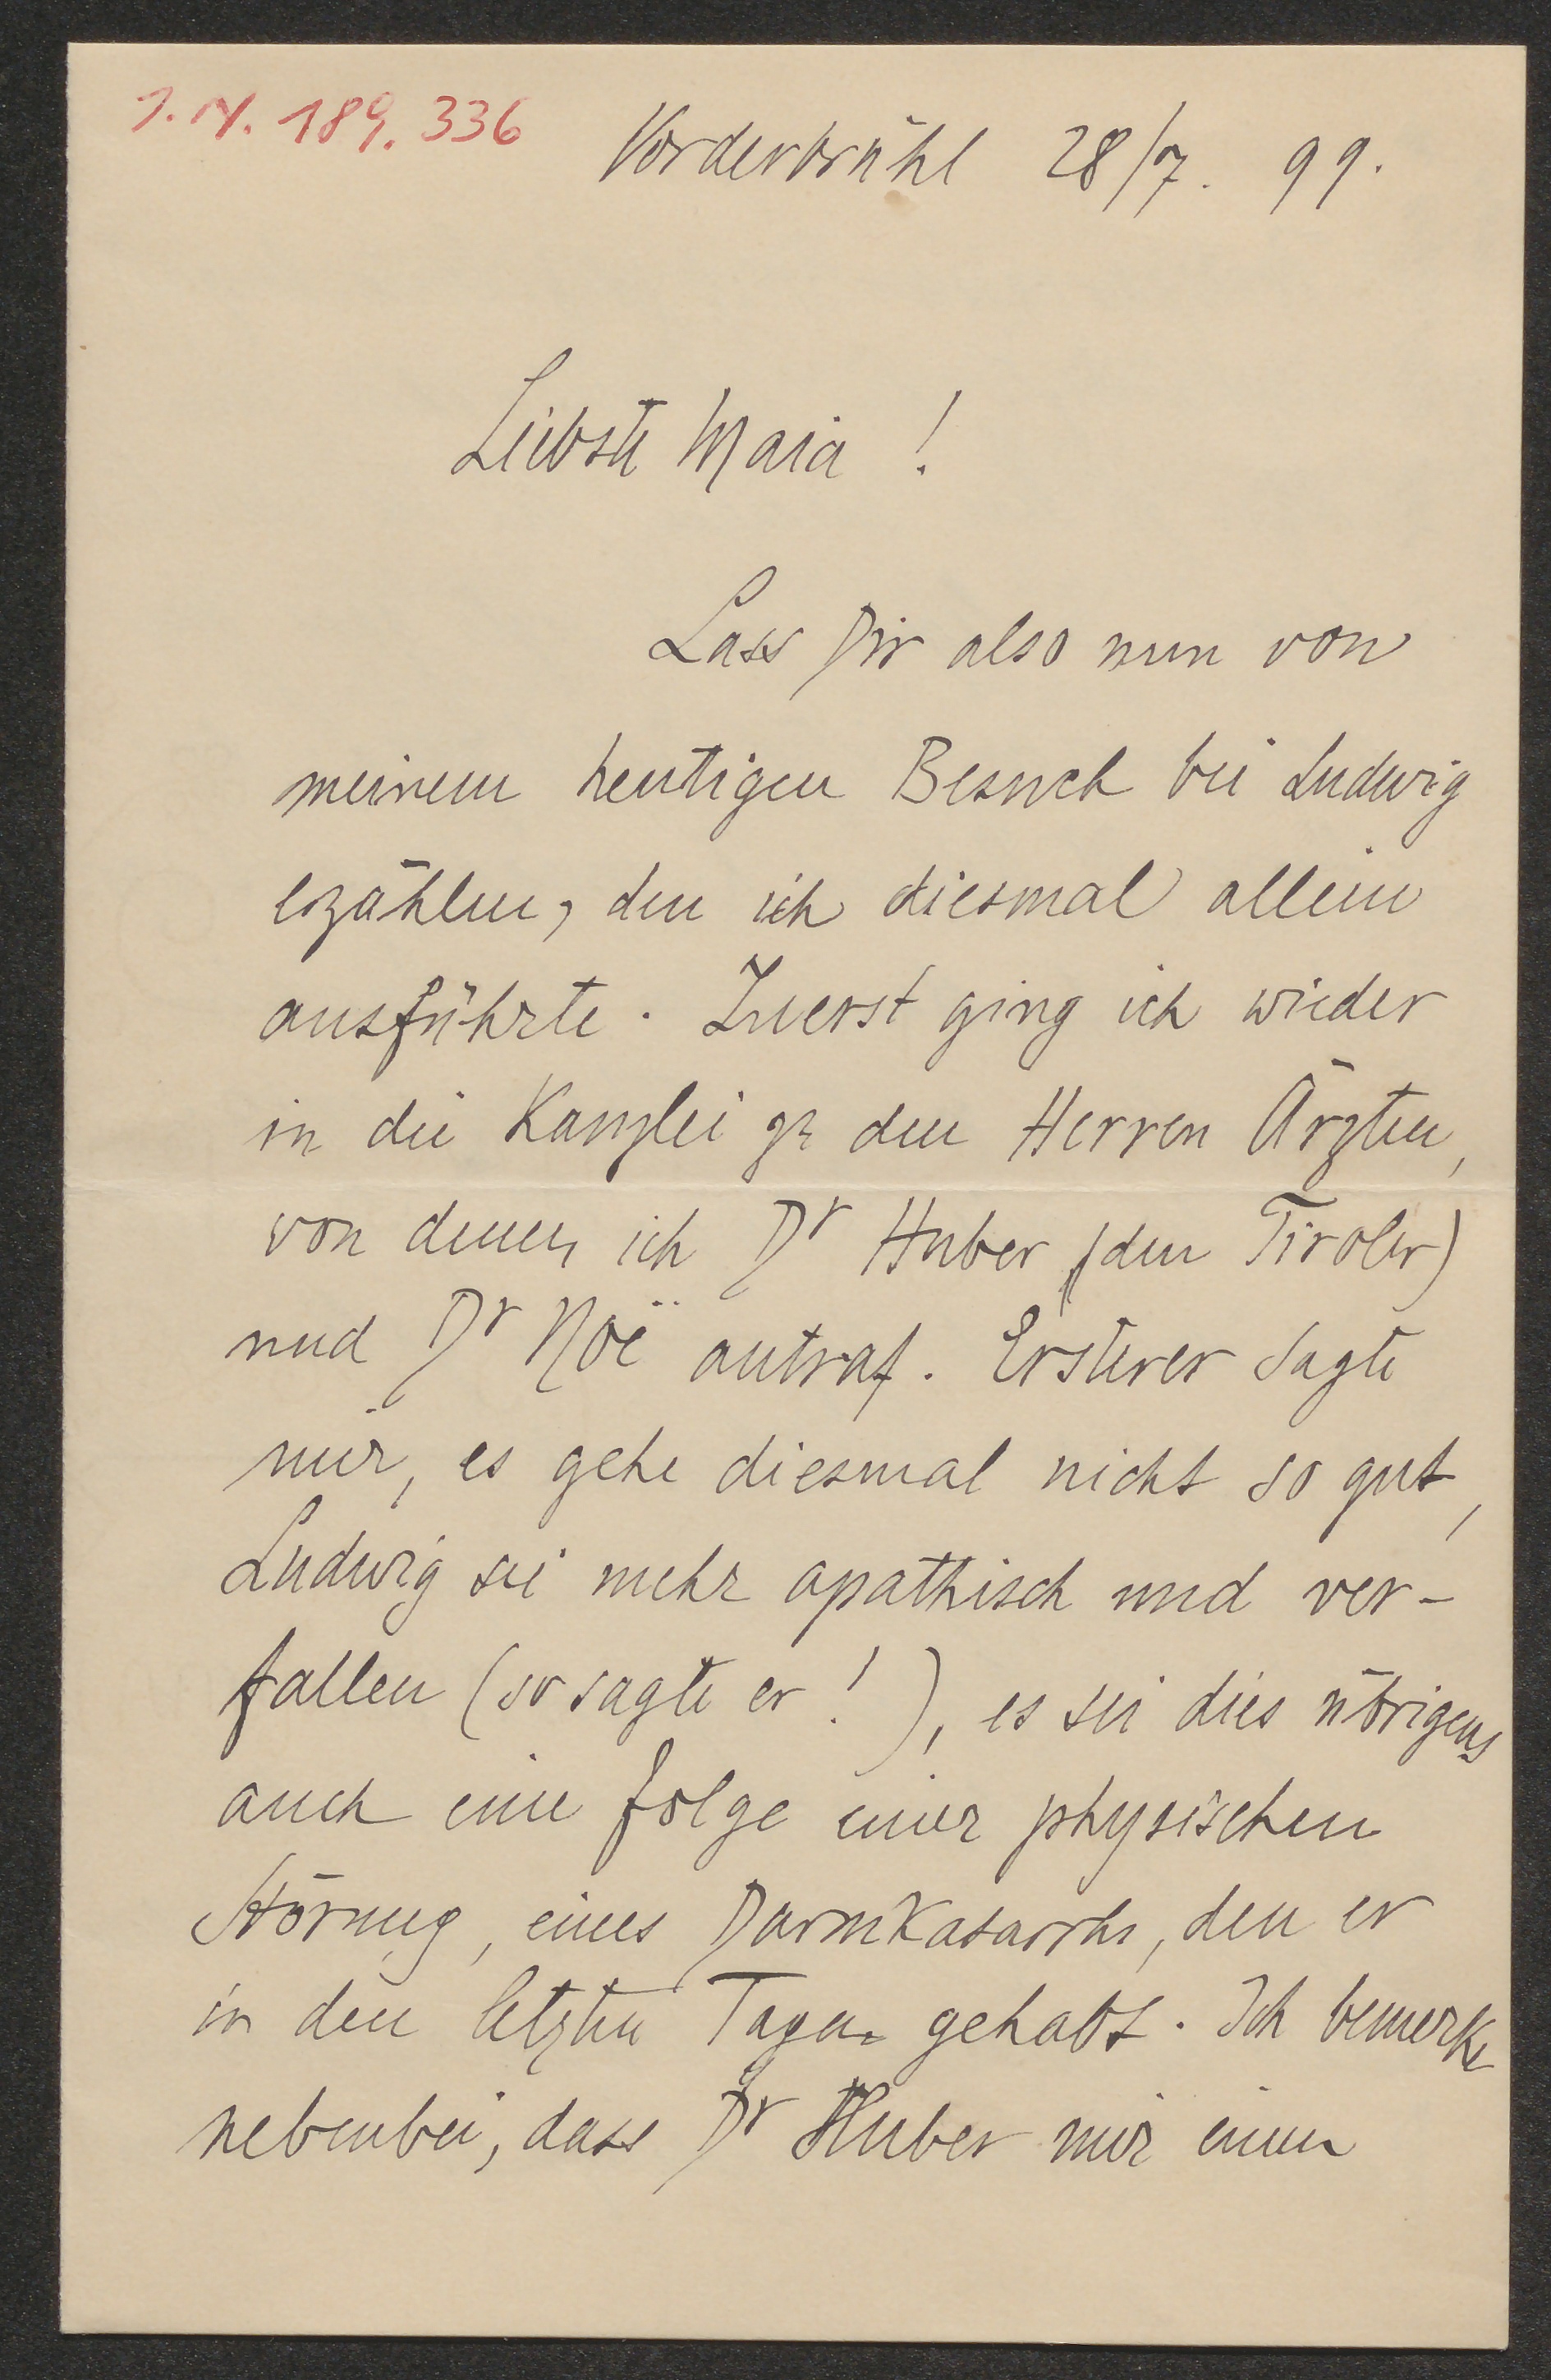 I.N. 189.336
Vorderbrühl 28/7. 99.
Liebste Maja!
Lass Dir also nun von
meinem heutigen Besuch bei Ludwig
erzählen, den ich diesmal allein
ausführte. Zuerst ging ich wieder
in die Kanzlei zu den Herren Ärzten,
von denen ich Dr Huber (den Tiroler)
und Dr Noë antraf. Ersterer sagte
mir, es gehe diesmal nicht so gut,
Ludwig sei mehr apathisch und ver-
fallen (so sagte er!), es sei dies übrigens
auch eine Folge einer physischen
Störung, eines Darmkatarrhs, den er
in den letzten Tagen gehabt. Ich bemerke
nebenbei, dass Dr Huber mir einen